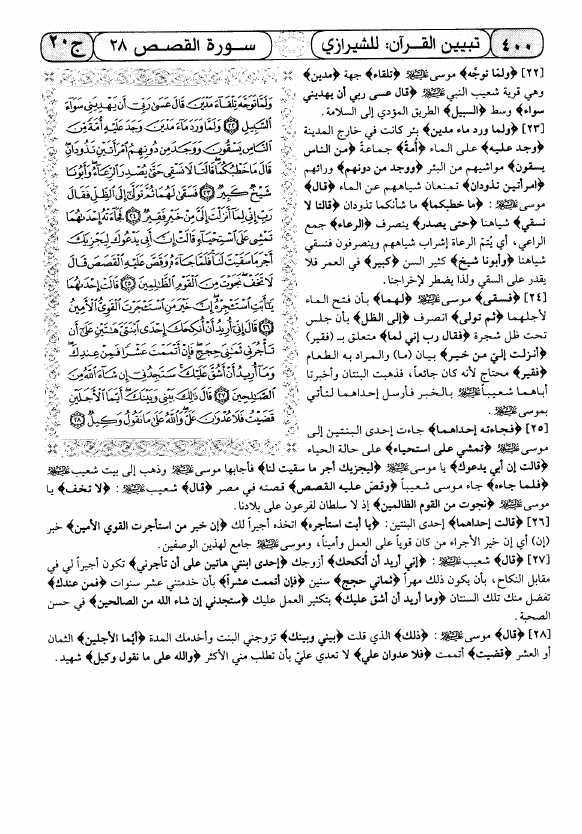 ٤٠٠
تبيين القرآن: للشيرازي
سورة القصص ٢٨
ج٢٠
[٢٢] ﴿ولما توجّه﴾ موسى ﷺ ﴿تلقاء﴾ جهة ﴿مدين﴾
وهي قرية شعيب النبي ﷺ ﴿قال عسى ربي أن يهديني
سواء﴾ وسط ﴿السبيل﴾ الطريق المؤدي إلى السلامة.
[٢٣] ﴿ولما ورد ماء مدين﴾ بئر كانت في خارج المدينة
﴿وجد عليه﴾ على الماء ﴿أُمة﴾ جماعةً ﴿من الناس
يسقون﴾ مواشيهم من البئر ﴿ووجد من دونهم﴾ ورائهم
﴿امرأتين تذودان﴾ تمنعان شياههم عن الماء ﴿قال﴾
موسى ﷺ: ﴿ما خطبكما﴾ ما شأنكما تذودان ﴿قالتا لا
نسقي﴾ شياهنا ﴿حتى يصدر﴾ ينصرف ﴿الرعاء﴾ جمع
الراعي، أي يُتم الرعاة إشراب شياههم وينصرفون فنسقي
شياهنا ﴿وأبونا شيخ﴾ كثير السن ﴿كبير﴾ في العمر فلا
يقدر على السقي ولذا يضطر لإخراجنا.
[٢٤] ﴿فسقى﴾ موسى ﷺ ﴿لهما﴾ بأن فتح الماء
لأجلهما ﴿ثم تولى﴾ انصرف ﴿إلى الظل﴾ بأن جلس
تحت ظل شجرة ﴿فقال رب إني لما﴾ متعلق بـ (فقير)
﴿أنزلت إليّ من خير﴾ بيان (ما) والمراد به الطعام
﴿فقير﴾ محتاج لأنه كان جائعاً، فذهبت البنتان وأخبرتا
أباهما شعيباً ﷺ بالخبر فأرسل إحداهما لتأتي
بموسى ﷺ.
[٢٥] ﴿فجاءته إحداهما﴾ جاءت إحدى البنتين إلى
موسى ﷺ ﴿تمشي على استحياء﴾ على حالة الحياء
وَلَمَّا تَوَجَّهَ تِلْقَاءَ مَدْيَنَ قَالَ عَسَىٰ رَبِّي أَن يَهْدِيَنِي سَوَاءَ
السَّبِيلِ ﴿٢٢﴾ وَلَمَّا وَرَدَ مَاءَ مَدْيَنَ وَجَدَ عَلَيْهِ أُمَّةً مِّنَ
النَّاسِ يَسْقُونَ وَوَجَدَ مِن دُونِهِمُ امْرَأَتَيْنِ تَذُودَانِ
قَالَ مَا خَطْبُكُمَا قَالَتَا لَا نَسْقِي حَتَّىٰ يُصْدِرَ الرِّعَاءُ وَأَبُونَا
شَيْخٌ كَبِيرٌ ﴿٢٣﴾ فَسَقَىٰ لَهُمَا ثُمَّ تَوَلَّىٰ إِلَى الظِّلِّ فَقَالَ
رَبِّ إِنِّي لِمَا أَنزَلْتَ إِلَيَّ مِنْ خَيْرٍ فَقِيرٌ ﴿٢٤﴾ فَجَاءَتْهُ إِحْدَاهُمَا
تَمْشِي عَلَى اسْتِحْيَاءٍ قَالَتْ إِنَّ أَبِي يَدْعُوكَ لِيَجْزِيَكَ
أَجْرَ مَا سَقَيْتَ لَنَا فَلَمَّا جَاءَهُ وَقَصَّ عَلَيْهِ الْقَصَصَ قَالَ
لَا تَخَفْ نَجَوْتَ مِنَ الْقَوْمِ الظَّالِمِينَ ﴿٢٥﴾ قَالَتْ إِحْدَاهُمَا
يَا أَبَتِ اسْتَأْجِرْهُ إِنَّ خَيْرَ مَنِ اسْتَأْجَرْتَ الْقَوِيُّ الْأَمِينُ
﴿٢٦﴾ قَالَ إِنِّي أُرِيدُ أَنْ أُنكِحَكَ إِحْدَى ابْنَتَيَّ هَاتَيْنِ عَلَىٰ أَن
تَأْجُرَنِي ثَمَانِيَ حِجَجٍ فَإِنْ أَتْمَمْتَ عَشْرًا فَمِنْ عِندِكَ
وَمَا أُرِيدُ أَنْ أَشُقَّ عَلَيْكَ سَتَجِدُنِي إِن شَاءَ اللَّهُ مِنَ
الصَّالِحِينَ ﴿٢٧﴾ قَالَ ذَٰلِكَ بَيْنِي وَبَيْنَكَ أَيَّمَا الْأَجَلَيْنِ
قَضَيْتُ فَلَا عُدْوَانَ عَلَيَّ وَاللَّهُ عَلَىٰ مَا نَقُولُ وَكِيلٌ ﴿٢٨﴾
﴿قالت إن أبي يدعوك﴾ يا موسى ﷺ ﴿ليجزيك أجر ما سقيت لنا﴾ فأجابها موسى ﷺ وذهب إلى بيت شعيب ﷺ
﴿فلما جاءه﴾ جاء موسى شعيباً ﴿وقص عليه القصص﴾ قصته في مصر ﴿قال﴾ شعيب ﷺ: ﴿لا تخف﴾ يا
موسى ﷺ ﴿نجوت من القوم الظالمين﴾ إذ لا سلطان لفرعون على بلادنا.
[٢٦] ﴿قالت إحداهما﴾ إحدى البنتين: ﴿يا أبت استأجره﴾ اتخذه أجيراً لك ﴿إن خير من استأجرت القوي الأمين﴾ خبر
(إن) أي إن خير الأجراء من كان قوياً على العمل وأميناً، وموسى ﷺ جامع لهذين الوصفين.
[٢٧] ﴿قال﴾ شعيب ﷺ: ﴿إني أريد أن أنكحك﴾ أزوجك ﴿إحدى ابنتي هاتين على أن تأجرني﴾ تكون أجيراً لي في
مقابل النكاح، بأن يكون ذلك مهراً ﴿ثماني حجج﴾ سنين ﴿فإن أتممت عشراً﴾ بأن خدمتني عشر سنوات ﴿فمن عندك﴾
تفضل منك تلك السنتان ﴿وما أريد أن أشق عليك﴾ بتكثير العمل عليك ﴿ستجدني إن شاء الله من الصالحين﴾ في حسن
الصحبة.
[٢٨] ﴿قال﴾ موسى ﷺ: ﴿ذلك﴾ الذي قلت ﴿بيني وبينك﴾ تزوجني البنت وأخدمك المدة ﴿أيّما الأجلين﴾ الثمان
أو العشر ﴿قضيت﴾ أتممت ﴿فلا عدوان علي﴾ لا تعدي عليّ بأن تطلب مني الأكثر ﴿والله على ما نقول وكيل﴾ شهيد.